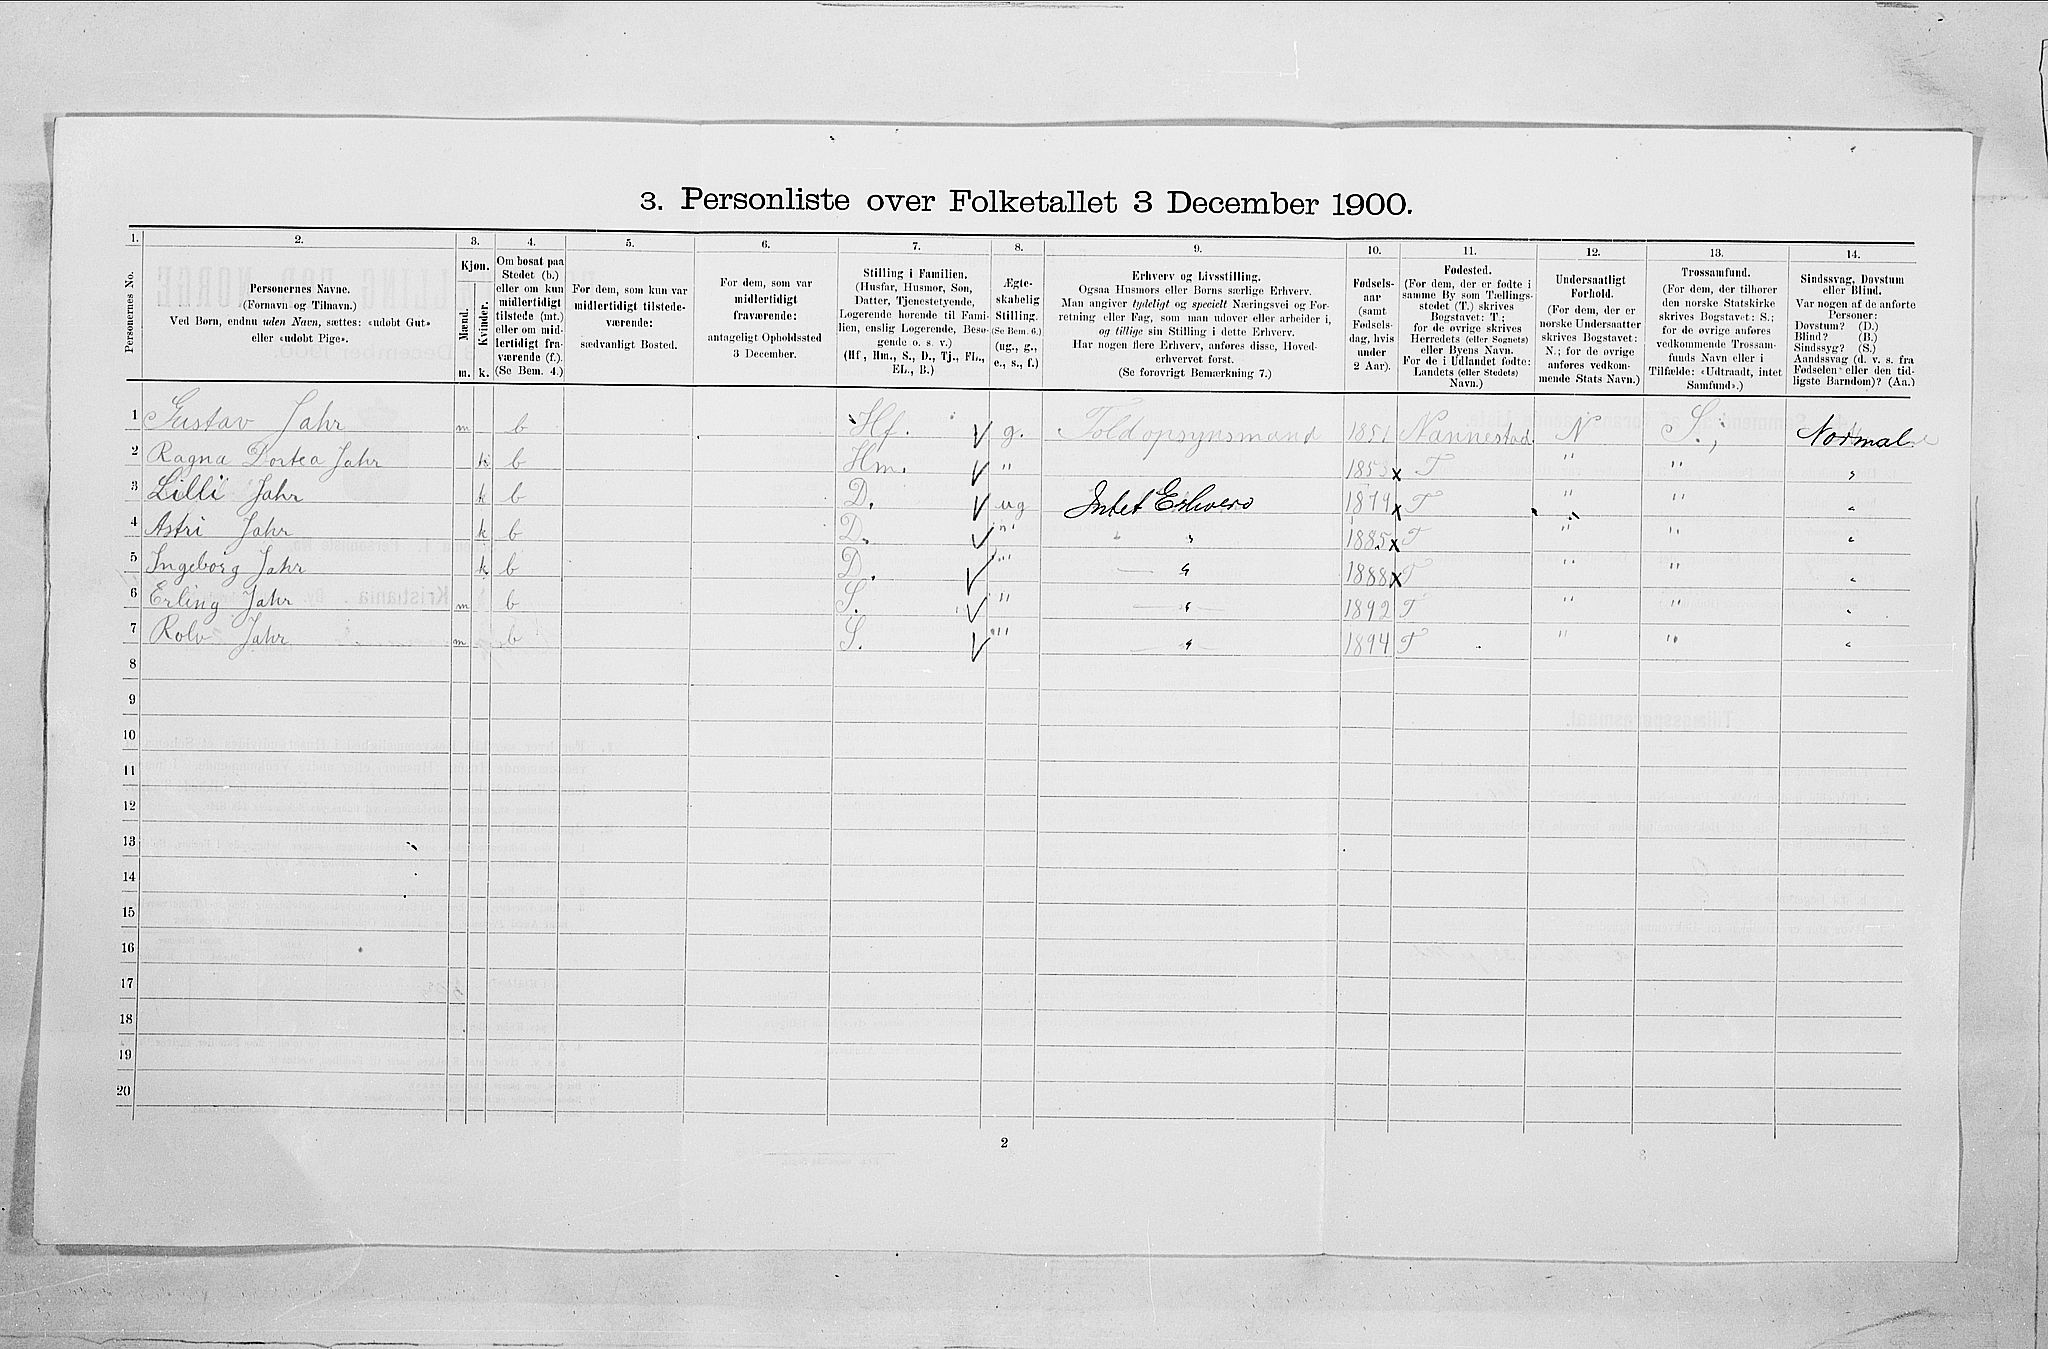 3. Personliste over Folketallet 3 December 1900.
1. 2. 3. 4. 5. 6. 7. 8. 9. 10. 11. 12. 13. 14.
Personernes No.
Personernes Navne.
(Fornavn og Tilnavn.)
Ved Børn, endnu uden Navn, sættes: «udøbt Gut»
eller «udøbt Pige».
Kjøn.
Mænd.
Kvinder.
m. k.
Om bosat paa
Stedet (b.)
eller om kun
midlertidigt
tilstede (mt.)
eller om mid-
lertidigt fra-
værende (f.).
(Se Bem. 4.)
For dem, som kun var
midlertidigt tilstede-
værende:
sædvanligt Bosted.
For dem, som var
midlertidigt
fraværende:
antageligt Opholdssted
3 December.
Stilling i Familien.
(Husfar, Husmor, Søn,
Datter, Tjenestetyende,
Logerende hørende til Fami-
lien, enslig Logerende, Besø-
gende o. s. v.)
(Hf., Hm., S., D., Tj., FL.,
EL., B.)
Ægte-
skabelig
Stilling.
(Se Bem. 6.)
(ug., g.,
e., s., f.)
Erhverv og Livsstilling.
Ogsaa Husmors eller Børns særlige Erhverv.
Man angiver tydeligt og specielt Næringsvei og For-
retning eller Fag, som man udøver eller arbeider i,
og tillige sin Stilling i dette Erhverv.
Har nogen flere Erhverv, anføres disse, Hoved-
erhvervet først.
(Se forøvrigt Bemærkning 7.)
Fødsels-
aar
(samt
Fødsels-
dag, hvis
under
2 Aar).
Fødested.
(For dem, der er fødte i
samme By som Tællings-
stedet (T.) skrives
Bogstavet: T.;
for de øvrige skrives
Herredets (eller Sognets)
eller Byens Navn.
For de i Udlandet fødte:
Landets (eller Stedets)
Navn.)
Undersaatligt
Forhold.
(For dem, der er
norske Undersaatter
skrives Bogstavet:
N.; for de øvrige
anføres vedkom-
mende Stats Navn.)
Trossamfund.
(For dem, der tilhører
den norske Statskirke
skrives Bogstavet: S.;
for de øvrige anføres
vedkommende Trossam-
funds Navn eller i
Tilfælde: «Udtraadt, intet
Samfund».)
Sindssvag, Døvstum
eller Blind.
Var nogen af de anførte
Personer:
Døvstum? (D.)
Blind? (B.)
Sindssyg? (S.)
Aandssvag (d. v. s. fra
Fødselen eller den tid-
ligste Barndom)? (Aa.)
1 Gustav Jahr m b Hf. g. Toldopsynsmand 1851 Nannestad N S., Normal
2 Ragna Dortea Jahr k b Hm. " 1853 T " " "
3 Lilli Jahr k b D. ug Intet Erhverv 1879 T " " "
4 Astri Jahr k b D. " " 1885 T " " "
5 Ingeborg Jahr k b D. " " 1888 T " " "
6 Erling Jahr m b S. " " 1892 T " " "
7 Rolv Jahr m b S. " " 1894 T " " "
8
9
10
11
12
13
14
15
16
17
18
19
20
2